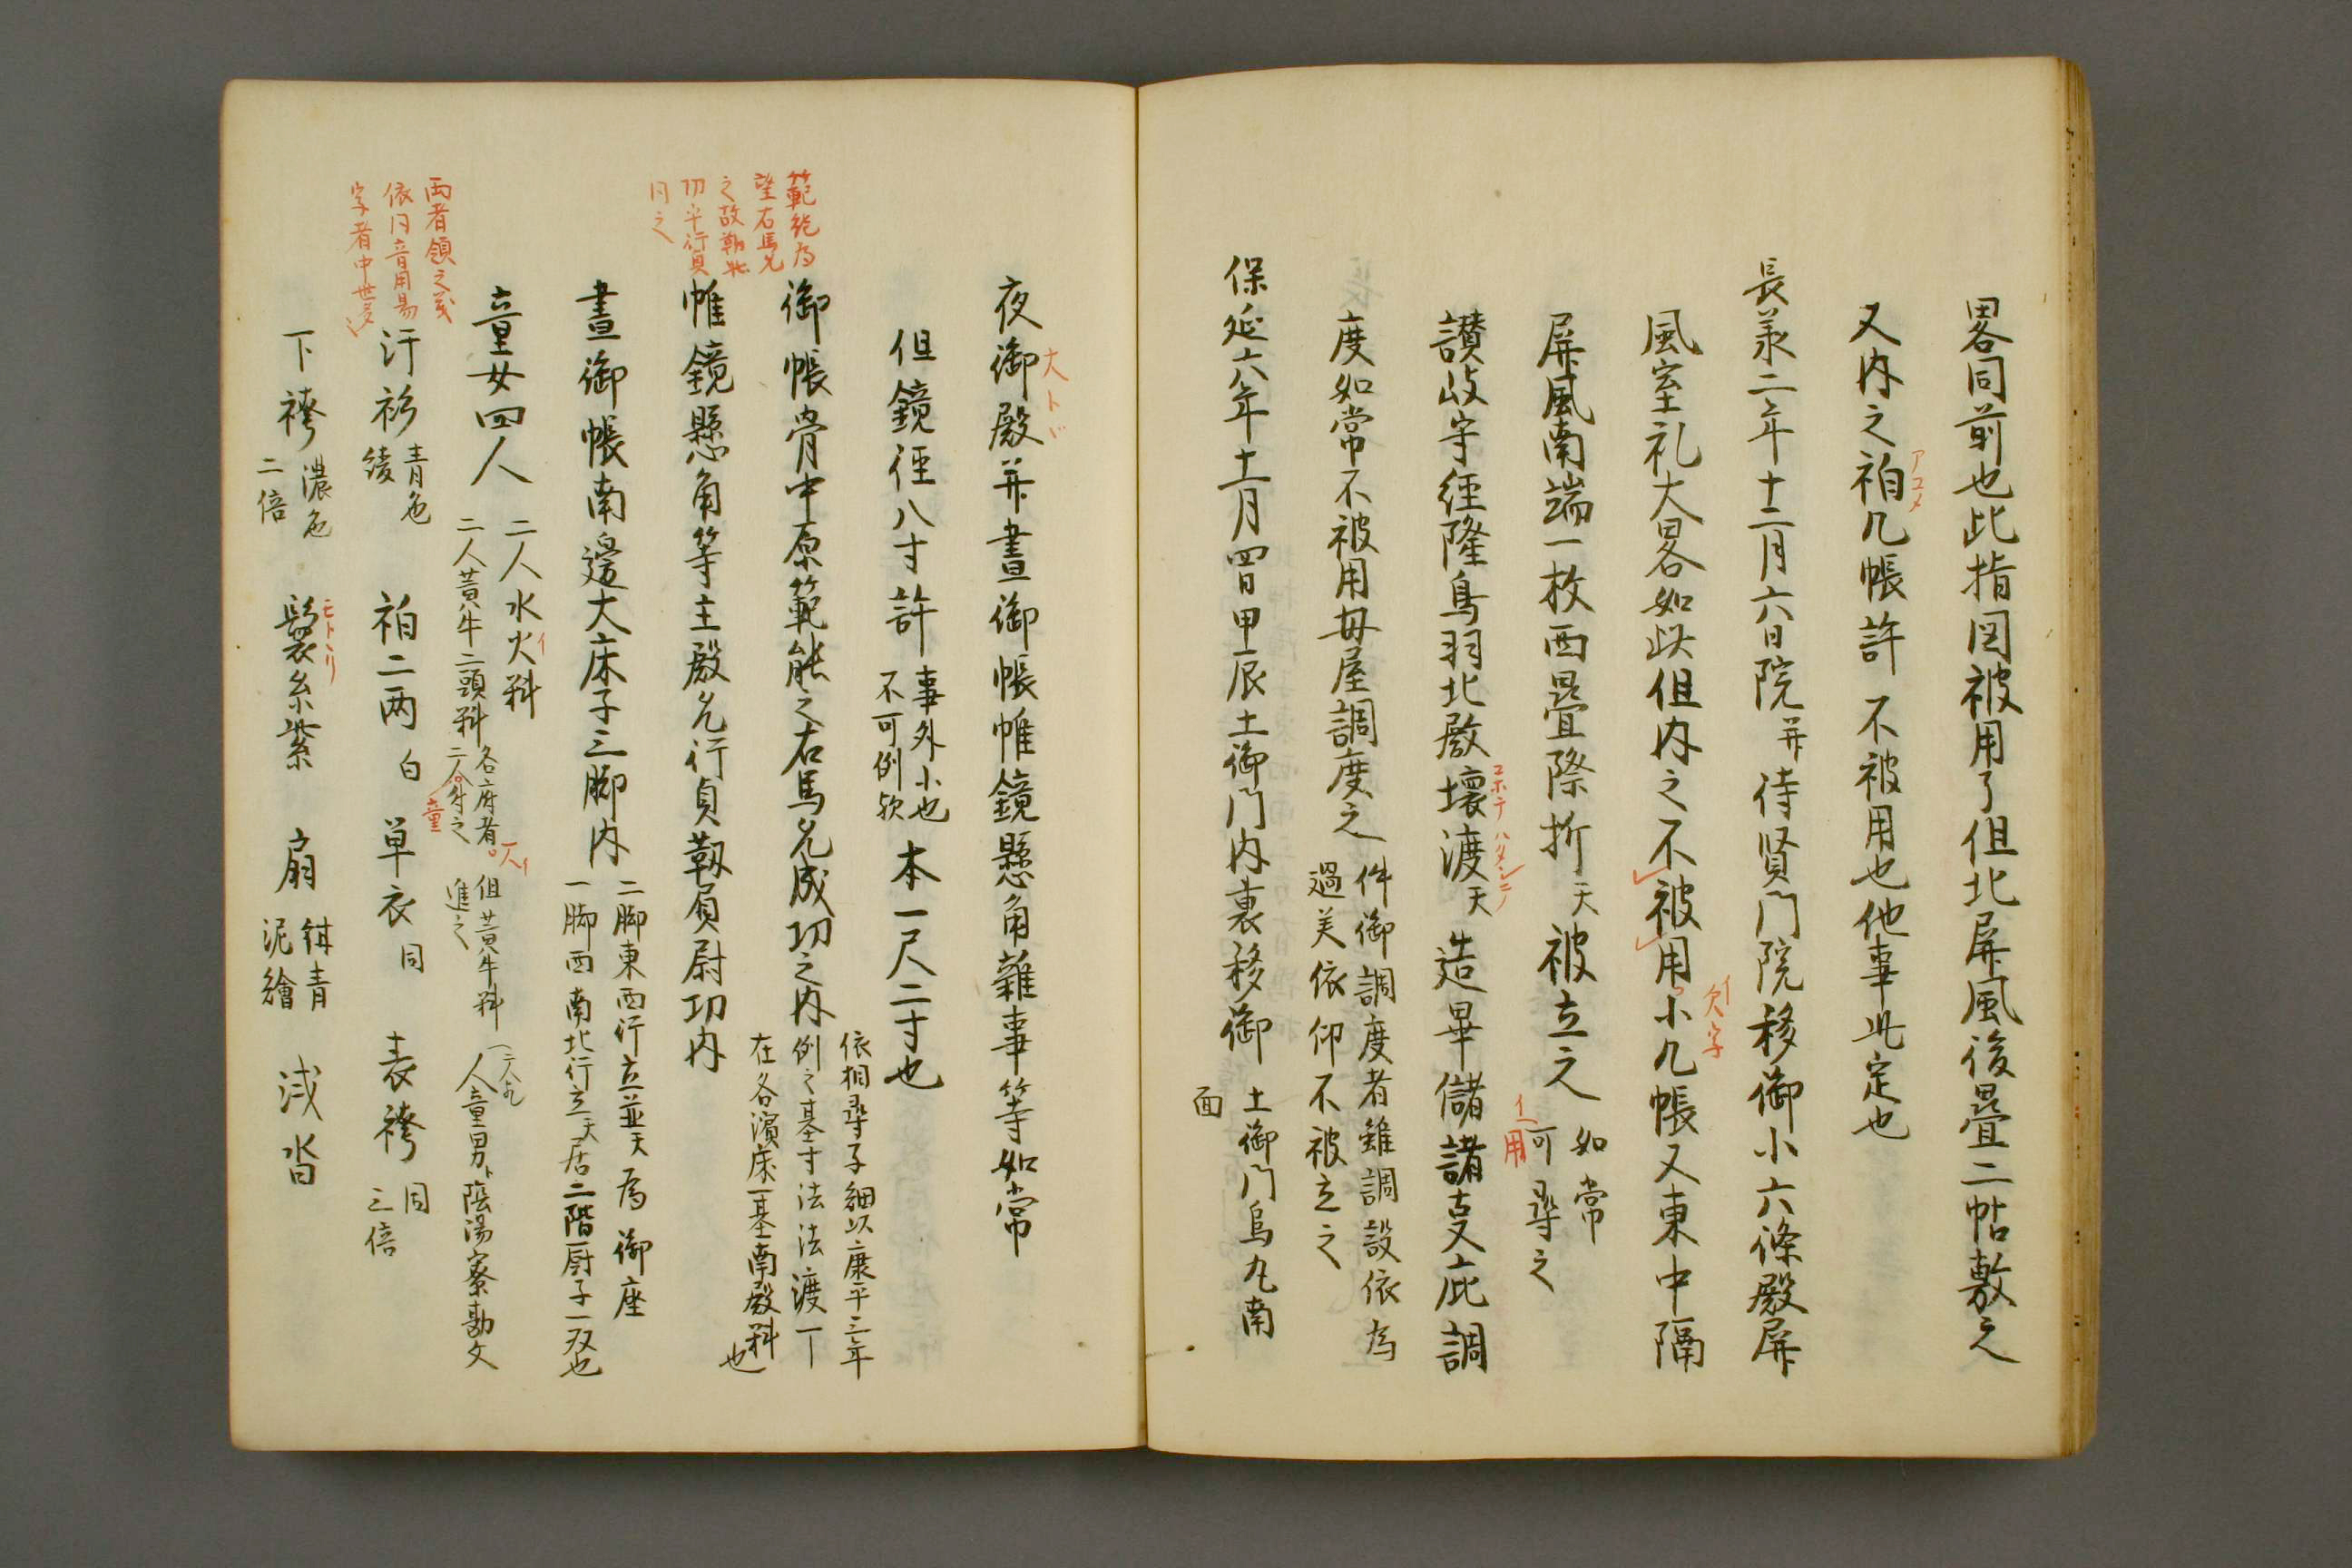 畧同前也此指図被用了但北屏風後疊二帖敷之
又内之袙几帳許不被用也他事此定也
アコメ
長承二年十二月六日院并待賢門院移御小六條殿屏
風室礼大畧如此但内之不被用小几帳又東中隔
イ欠字
屏風南端一枚西疊際折天被立之
如常
可尋之
イ用
讃岐守経隆鳥羽北殿壊渡天造畢儲諸事庇調
コホテ
度如常不被用母屋調度之
件御調度者雖調設依為
過美依仰不被立之
保延六年十一月四日甲辰土御門内裏移御
土御門烏丸南
面
夜御殿并晝御帳帷鏡懸角雜事等如常
大ト
但鏡径八寸許
事外小也
不可例欤
本一尺二寸也
御帳骨中原範能之右馬允成功之内
依相尋子細以康平三年
例之基寸法法渡丁
在各濱床一基南殿料也
範能為
望右馬允
之故
功平行貞
同之
帷鏡懸角等主殿允行貞靱負尉功内
晝御帳南邊大床子三脚内
二脚東西行立並天為御座
一脚西南北行立天居二階厨子一双也
童女四人
二人水火料
イ
二人黄牛二頭料
各府者
童
但黄牛料
進之
人童男 陰陽寮勘文
兩者領之義
依同音用易
字者中世多
汗衫
青色
綾
袙二兩
白
單衣
同
表袴
同
三倍
下袴
濃色
二倍
鬘糸紫
モトヽリ
扇
紺青
泥繪
浅沓